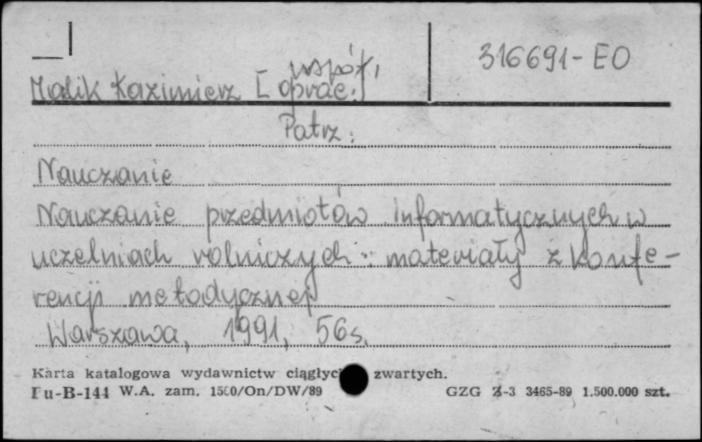 316691-EO
współ.
Malik Kazimierz [oprac.]
Patrz:
Nauczanie
Nauczanie przedmiotów informatycznych w
uczelniach rolniczych : materiały z konfe-
rencji metodycznej
Warszawa, 1991, 56s.
Karta katalogowa wydawnictw ciągłych zwartych.
Pu-B-144 W.A. zam. 1500/On/DW/89 GZG Z-3 3465-89 1.500.000 szt.